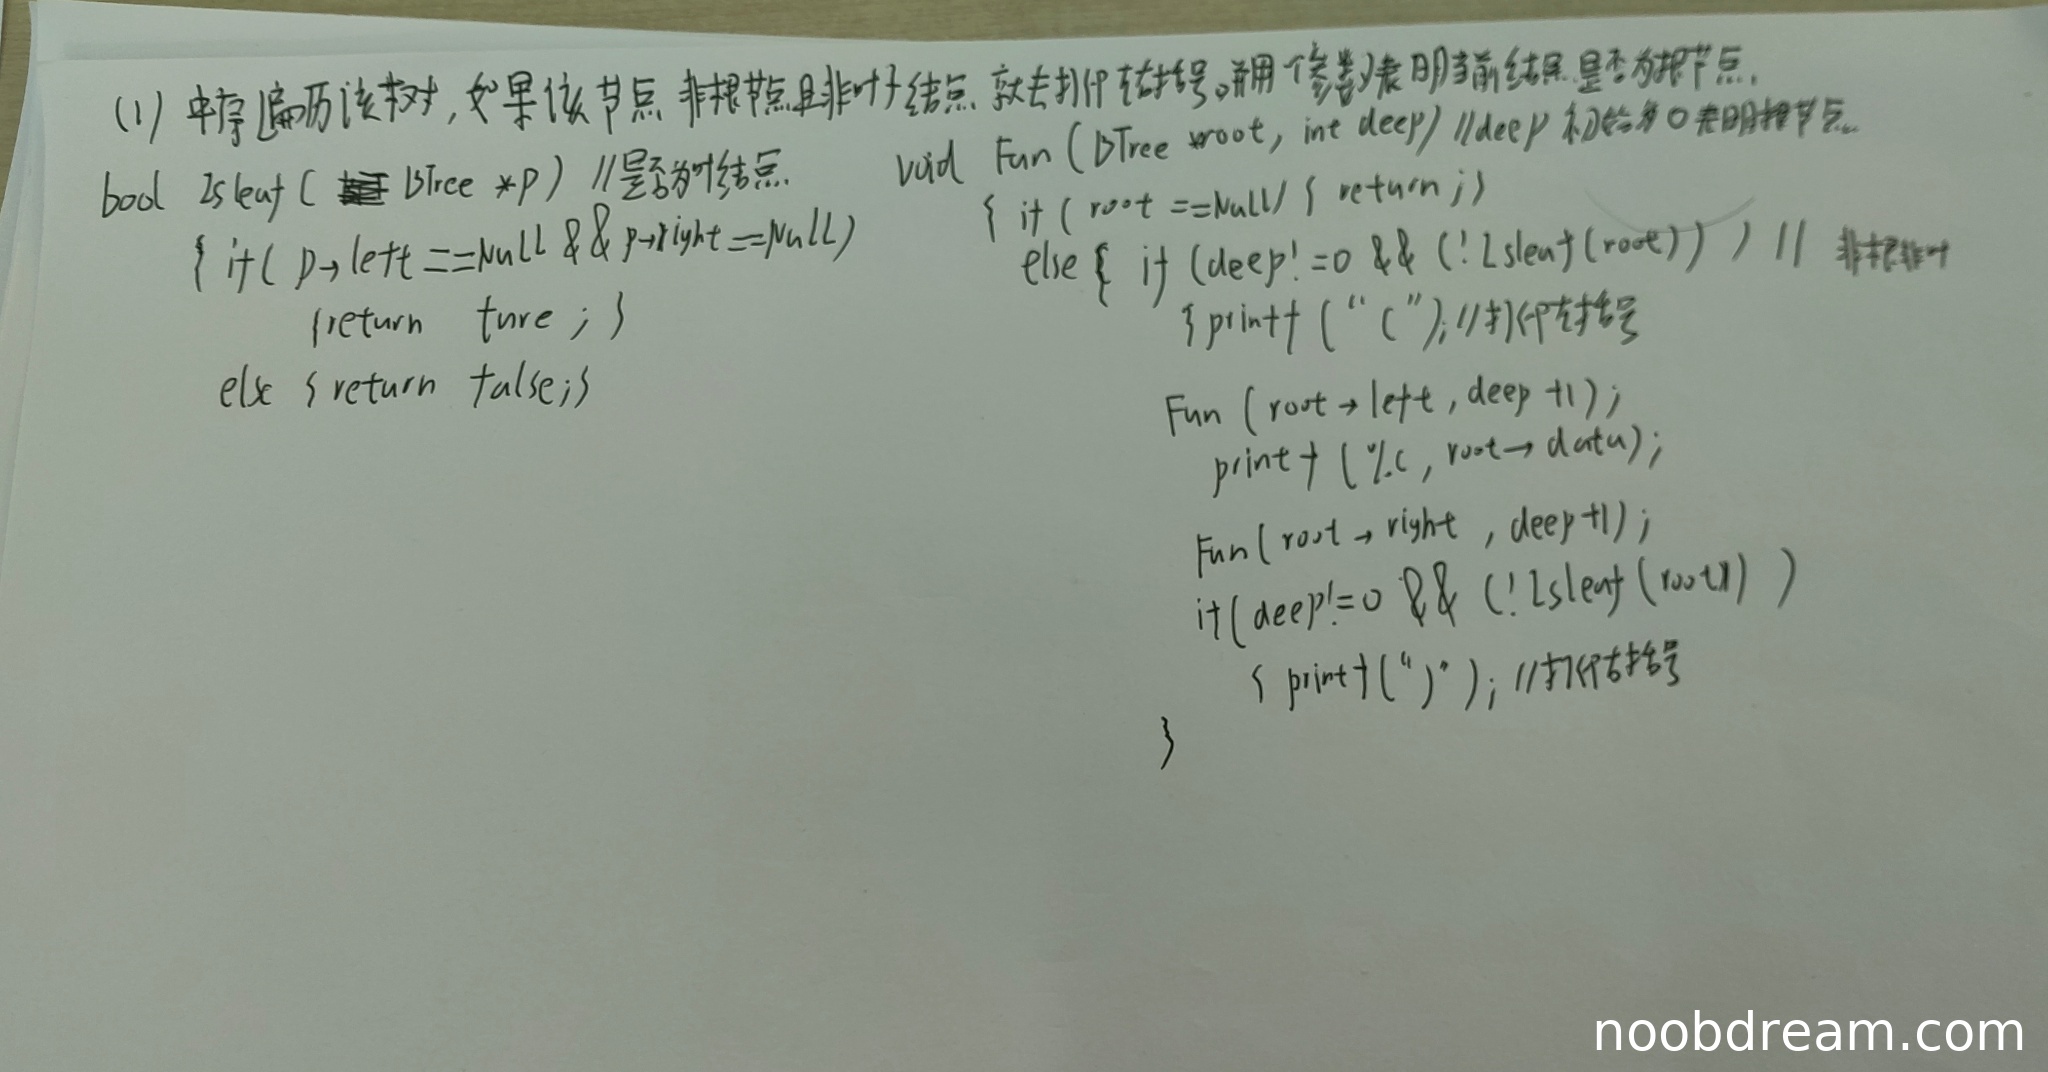 (1) 中序遍历该树,如果该节点 非根节点且非叶子结点 就去打印左右括号。并用个参数表明当前结果是否为根节点.
bool Isleaf ( BTree *p ) //是否为叶结点.
{ if( p→left ==Null && p→right ==Null)
{return ture ; }
else { return false;}
void Fun (BTree *root, int deep) //deep 初始为0表明根节点.
{ if ( root ==Null) { return ;}
else{ if (deep! =0 && (! Isleaf (root)) ) // 非根非叶
{ printf ( “ ( ” ); //打印左括号
Fun (root→left , deep +1 );
printf ( %c , root→data);
Fun( root→right , deep+1 );
if(deep!=0 && (! Isleaf (root)) )
{ printf (“ ) ” ); //打印右括号
}
noobdream.com